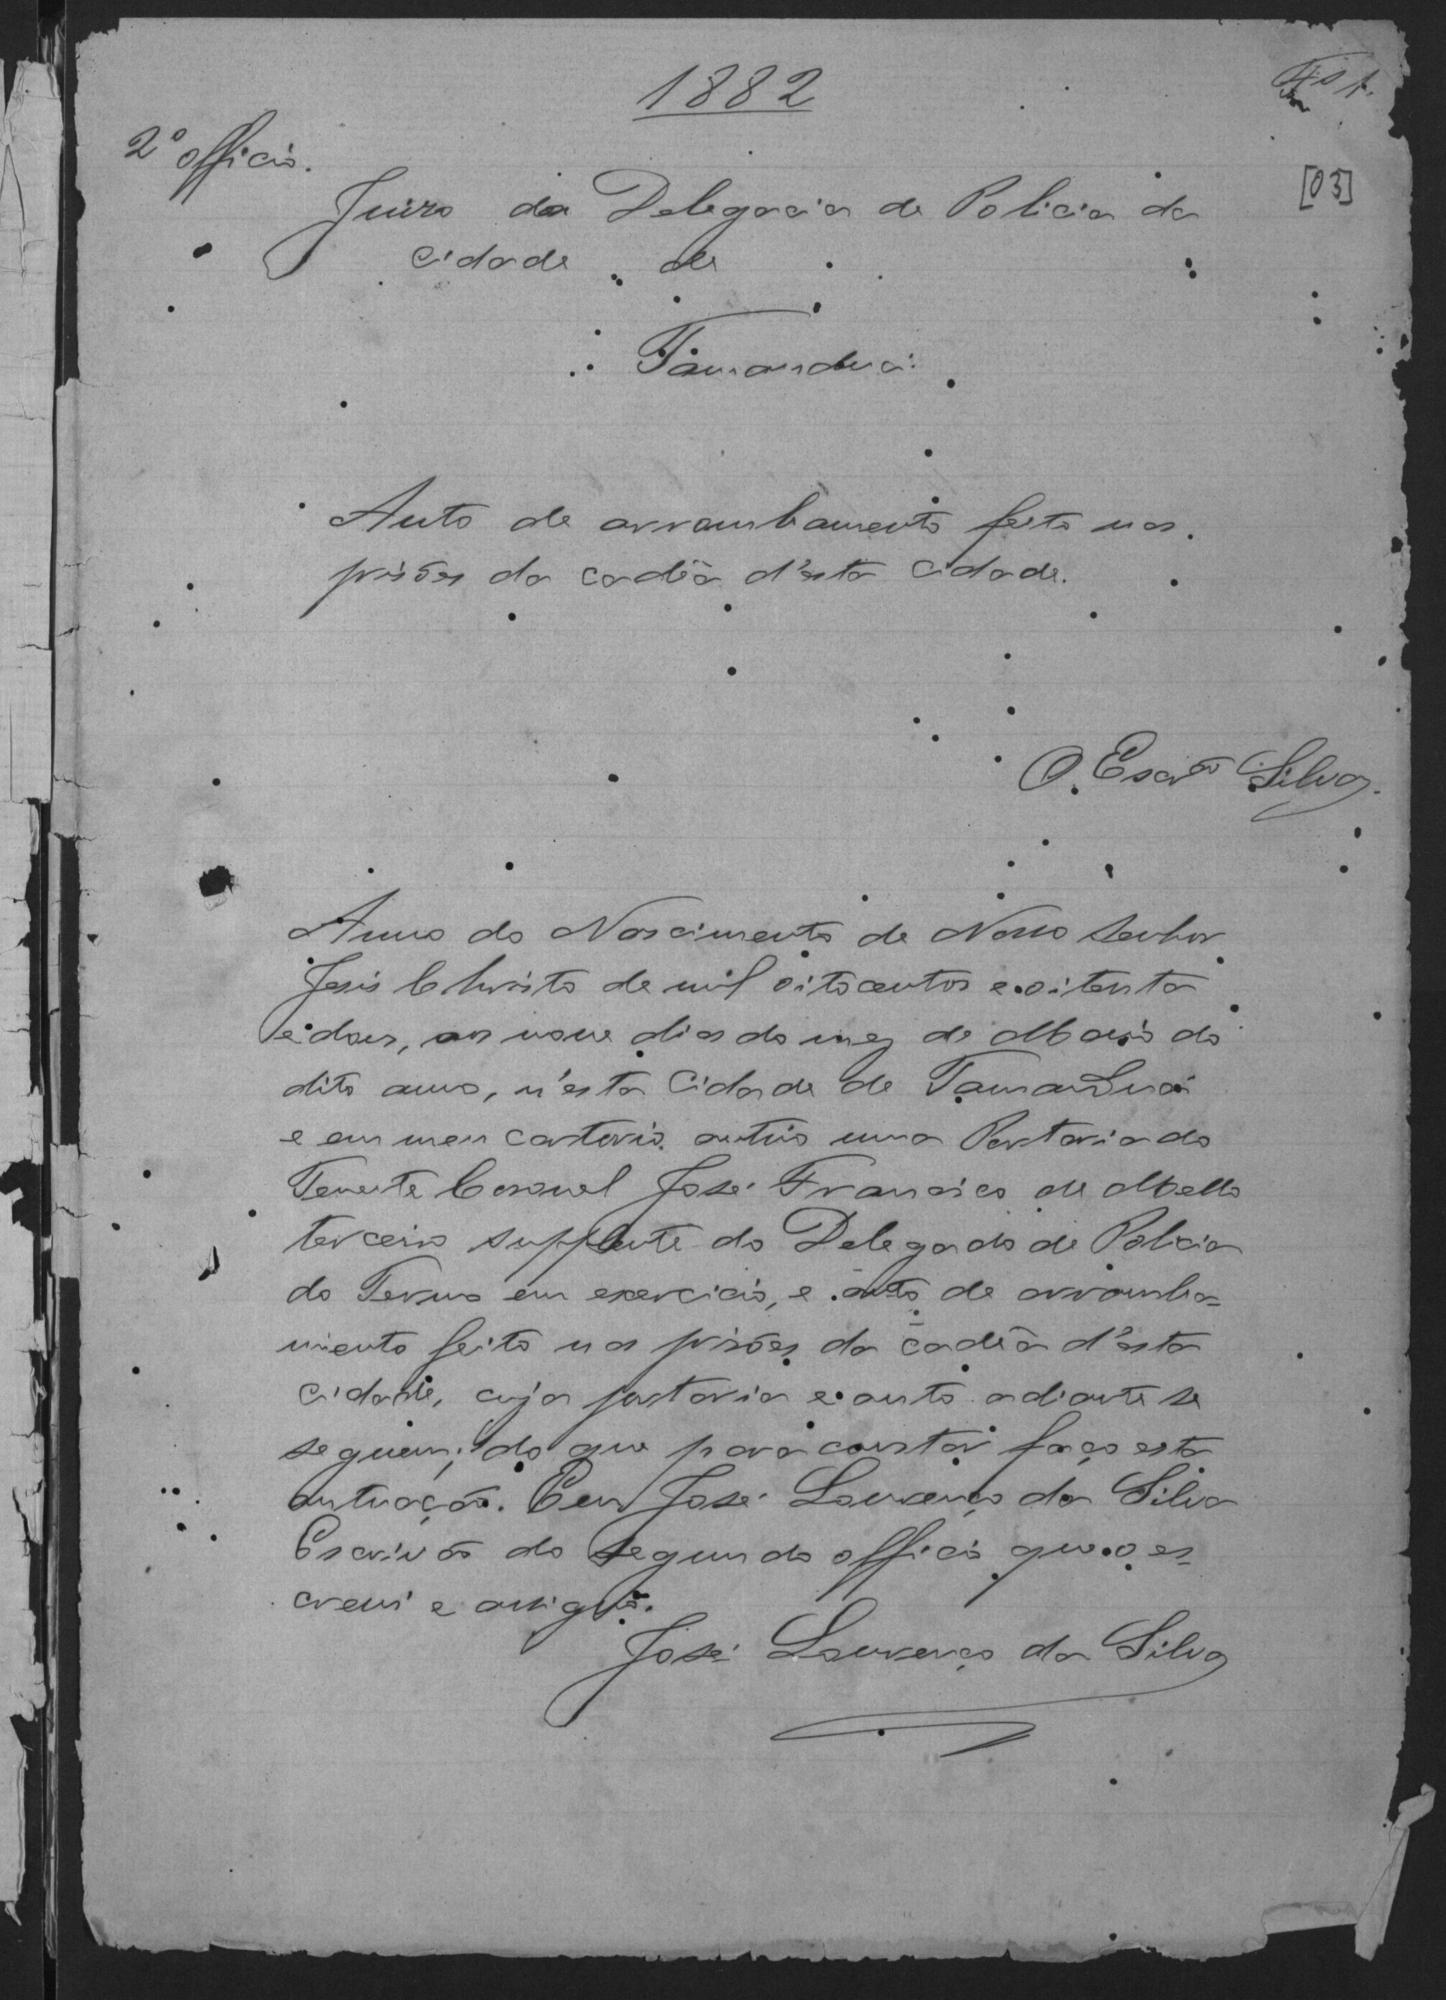 1882
Fls 1.
2º officio.
[03]
Juizo da Delegacia de Policia da
cidade de
Tamanduá
Auto de arrombamento feito nas
prisões da cadêa d'esta cidade.
O Escrᵃᵒ Silva.
Anno do Nascimento de Nosso Senhor
Jesús Christo de mil oitocentos e oitenta
e dous, aos nove dias do mez de Maio do
dito anno, n'esta Cidade de Tamanduá
e em meu cartorio autúo uma Portaria do
Tenente Coronel José Francisco de Mello
terceiro supplente do Delegado de Policia
do Termo em exercicio, e auto de arromba=
mento feito nas prisões da cadêa d'esta
cidade, cuja portaria e auto adiante se
seguem; do que para constar faço esta
autuação. Eu José Lourenço da Silva
Escrivão do segundo officio que o es=
crevi e assigno.
José Lourenço da Silva